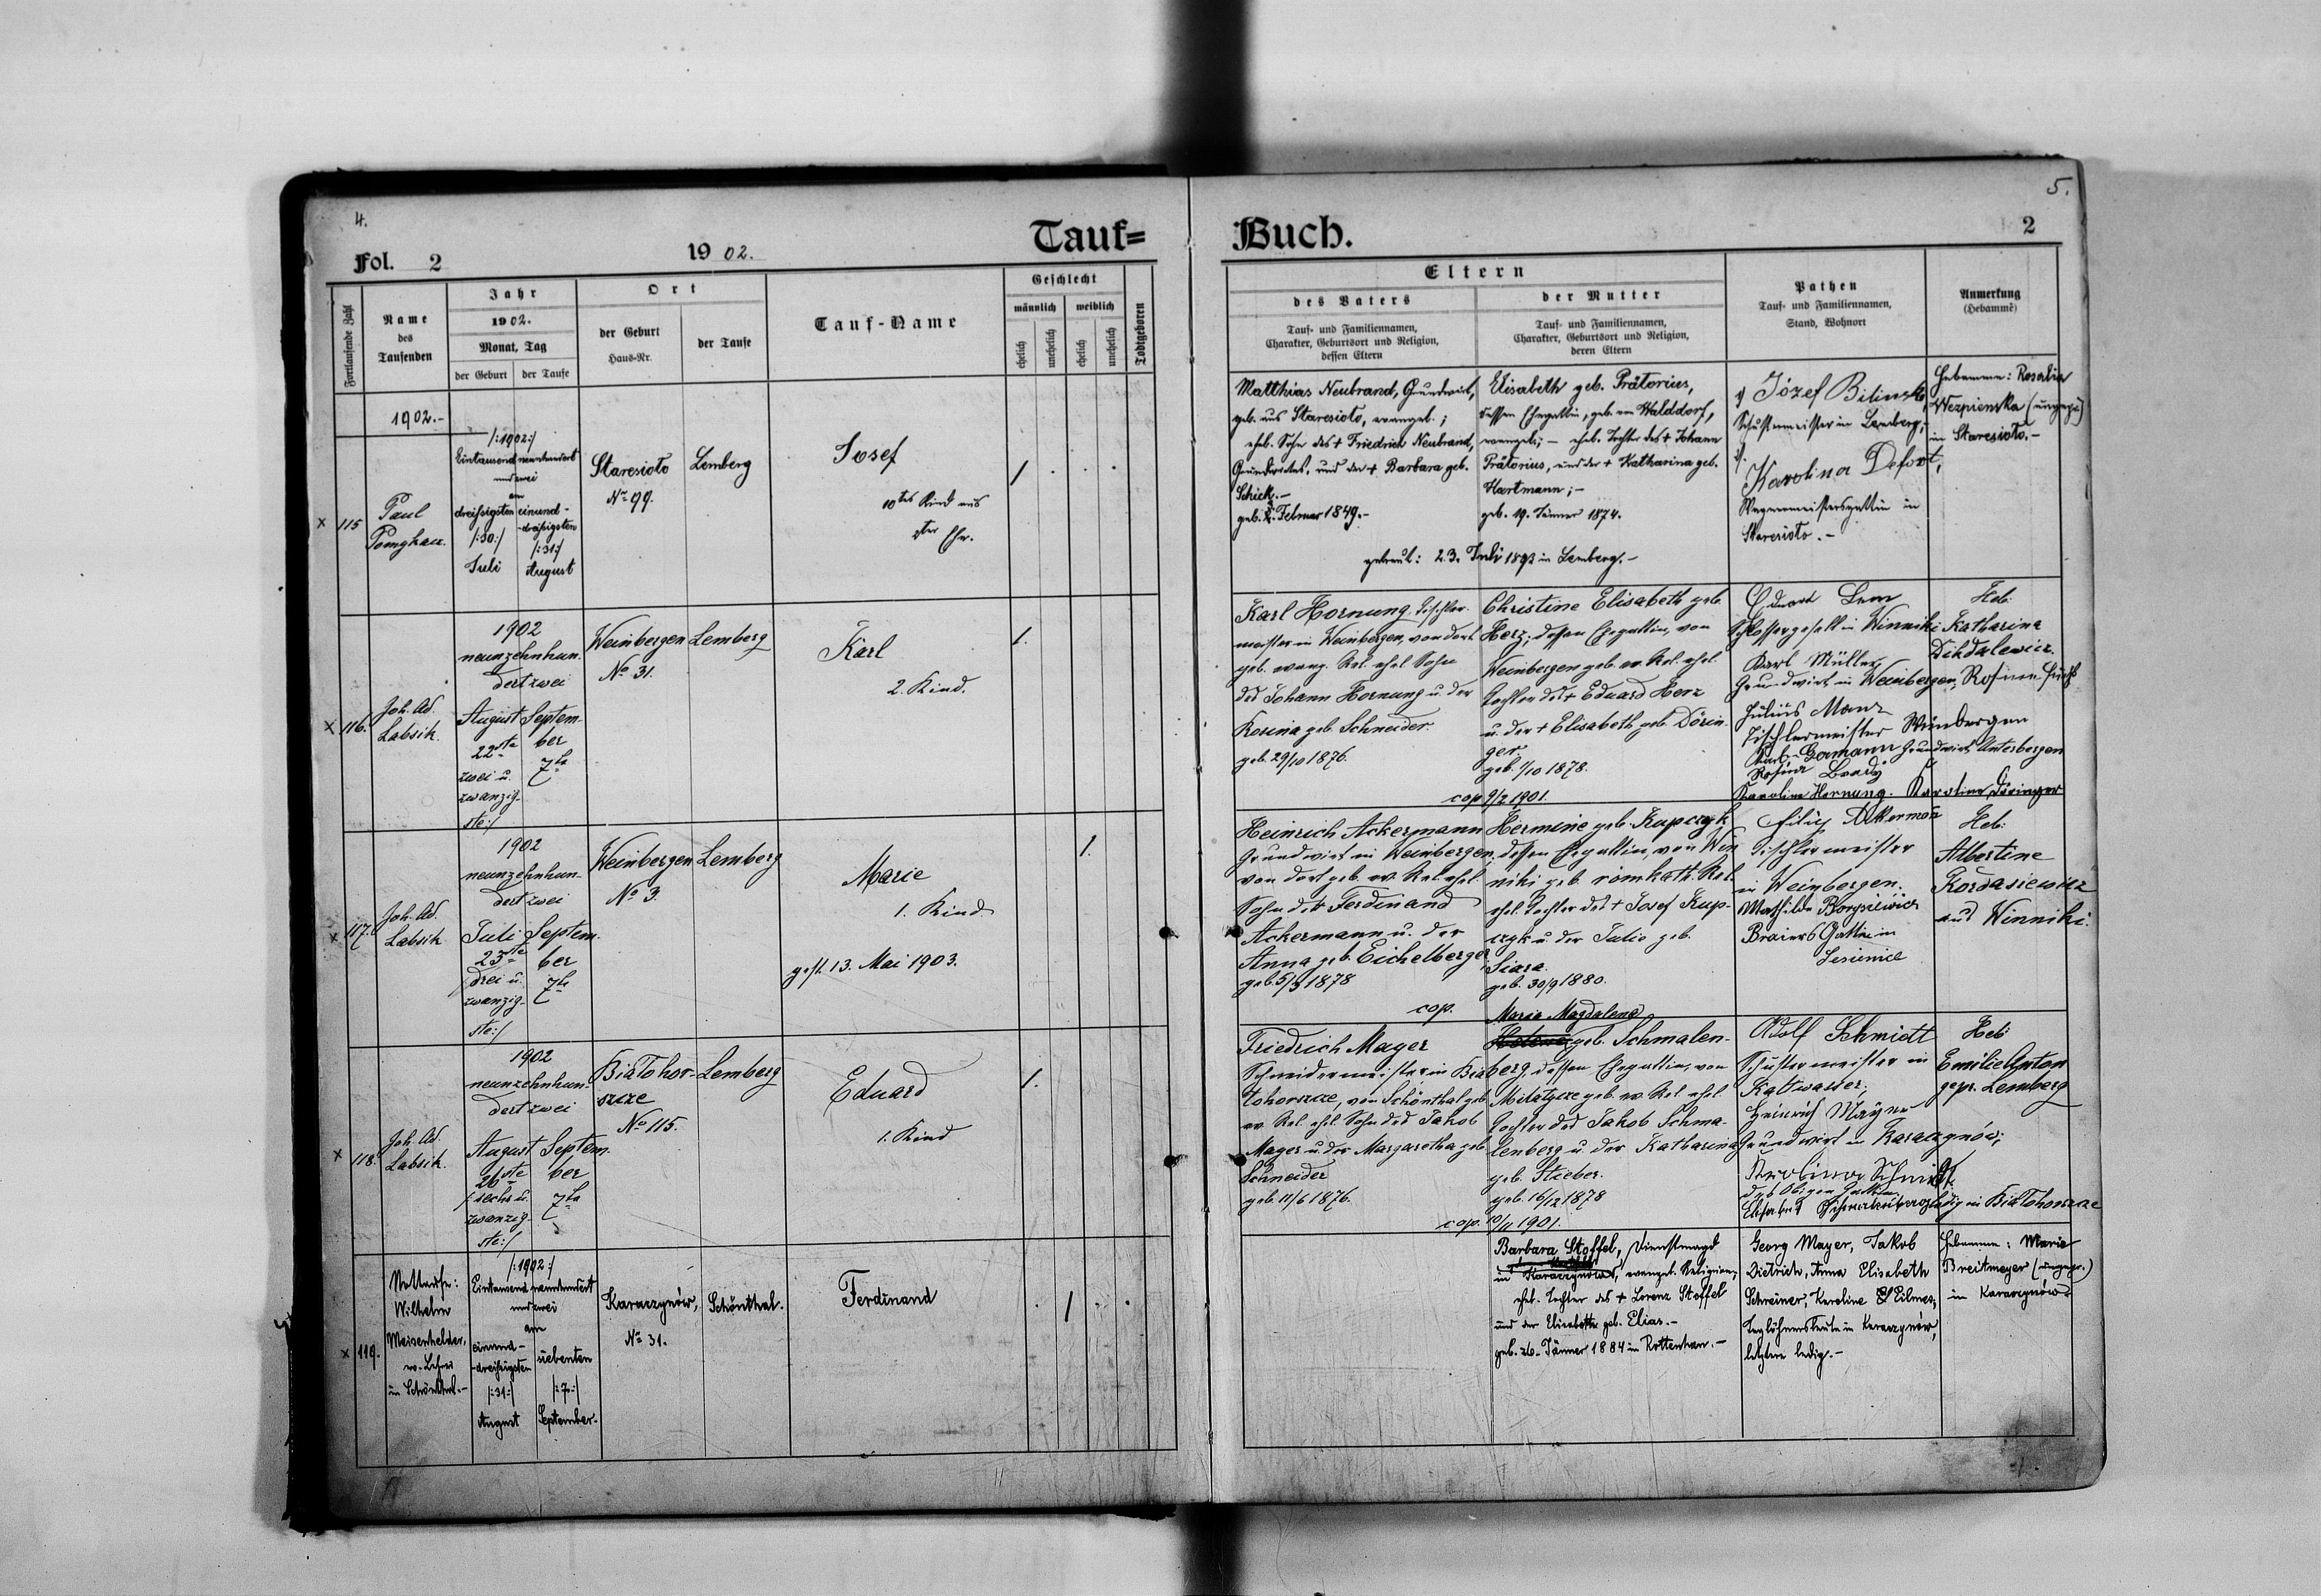 4.
Fol. 2
1902.
Tauf=
Fortlaufende Zahl
Name
des
Taufenden
Jahr
1902.
Monat, Tag
der Geburt
der Taufe
Ort
der Geburt
Haus-Nr.
der Taufe
Tauf-Name
Geschlecht
männlich
weiblich
ehelich
unehelich
ehelich
unehelich
Todtgeboren
1902.-
x 115
Paul
Pomykacz.
/:1902:/
Eintausend neunhundert
und zwei
am
dreißigsten
/:30:/
Juli
einund-
-dreißigsten
/:31:/
August
Staresioło
No 99.
Lemberg
Josef
10tes Kind aus
2ter Ehe.
1 . . .
x 116.
Joh. Ad.
Labsik.
1902
neunzehnhun-
dertzwei
August
22ste
zwei u.
zwanzig-
ste:/
Septem-
ber
7te
Weinbergen
No 31.
Lemberg
Karl
2. Kind.
1.
x 117.
Joh. Ad.
Labsik
1902
neunzehnhun-
dertzwei
Juli
23ste
/:drei u.
zwanzig-
ste:/
Septem-
ber
7te
Weinbergen
No 3.
Lemberg
Marie
1. Kind
gest. 13. Mai 1903.
1.
x 118.
Joh. Ad.
Labsik.
1902
neunzehnhun-
dertzwei
August
26ste
/:sechs u.
zwanzig-
ste:/
Septem-
ber
7te
Białohor-
szcze
No 115.
Lemberg
Eduard
1. Kind
1.
x 119.
Nottaufe:
Wilhelm
Meisenhelder,
ev. Lehrer
in Schönthal.-
/:1902:/
Eintausend neunhundert
und zwei
am
einund-
-dreißigsten
/:31:/
August
siebenten
/:7.:/
September.
Karaczynów,
No 31.
Schönthal.
Ferdinand
. 1 . .
5.
Buch.
2
Eltern
des Vaters
Tauf- und Familiennamen,
Charakter, Geburtsort und Religion,
dessen Eltern
der Mutter
Tauf- und Familiennamen,
Charakter, Geburtsort und Religion,
deren Eltern
Pathen
Tauf- und Familiennamen,
Stand, Wohnort
Anmerkung
(Hebamme)
Matthias Neubrand, Grundwirt,
geb. aus Staresioło, evangel.;
ehel. Sohn des + Friedrich Neubrand,
Grundwirtes, und der + Barbara geb.
Schick.-
geb. 2. Februar 1849.-
Elisabeth geb. Prätorius,
dessen Ehegattin, geb. von Walddorf,
evangel.;- ehel. Tochter des + Johann
Prätorius, und der + Katharina geb.
Hartmann;-
geb. 19. Jänner 1874.
getraut: 23. Juli 1893 in Lemberg.-
Józef Bilinski,
Schustermeister in Lemberg;
Karolina Defort,
Wagnermeistersgattin in
Staresioło.-
Hebamme: Rosalia
Wezpienska (ungepr.)
in Staresioło.-
Karl Hornung, Tischler-
meister in Weinbergen, von dort
geb. evang. Rel. ehel. Sohn
des Johann Hornung u. der
Rosina geb. Schneider.
geb. 29/10 1876.
Christine Elisabeth geb.
Herz; dessen Ehegattin, von
Weinbergen geb. ev. Rel. ehel.
Tochter des + Eduard Herz
u. der + Elisabeth geb. Dörin-
ger
geb. 1/10 1878.
cop. 9/2 1901.
Eduard Lem
Schlossergesell in Winniki
Karl Müller
Grundwirt in Weinbergen, Rosine
Julius Manz
Tischlermeister Weinbergen
Karl Germann Grundwirt Unterbergen
Rosina Brady
Karolina Hornung. Karolina Döringer
Heb.
Katharina
Dikdalewicz.
Heinrich Ackermann
Grundwirt in Weinbergen,
von dort geb. ev. Rel. ehel.
Sohn des Ferdinand
Ackermann u. der
Anna geb. Eichelberger
geb. 5/3 1878
Hermine geb. Kupczyk
dessen Ehegattin, von Win-
niki geb. römkath. Rel.
ehel. Tochter des + Josef Kup-
czyk u. der Julie geb.
Siara.
geb. 30/9 1880.
cop.
Filip Akerman
Tischlermeister
in Weinbergen.
Mathilde Borysiewicz
Braiers Gattin in
Lesienice
Heb:
Albertine
Kordasiewicz
aus Winniki.
Friedrich Mager
Schneidermeister in Bia-
łohorszcze, von Schönthal geb.
ev. Rel. ehel. Sohn des Jakob
Mager u. der Margaretha geb.
Schneider
geb. 11/6 1876.
Maria Magdalena
Helene geb. Schmalen-
berg, dessen Ehegattin, von
Miłatycze geb. ev. Rel. ehel.
Tochter des Jakob Schma-
lenberg u. der Katharina
geb. Stieber.
geb. 16/12 1878
cop. 10/11 1901.
Adolf Schmidt
Schustermeister in
Kaltwasser;
Heinrich Mayer
Grundwirt in Karaczynów;
Karolina Schmidt
des Obigen Gattin
Elisabet Schmalenberg ledig in Białohorszcze
Heb:
Emilie Anton
gepr. Lemberg
Barbara Stoffel, Dienstmagd
in Karaczynów, evangel. Religion,
ehel. Tochter des + Lorenz Stoffel
und der Elisabetha geb. Elias.-
geb. 26. Jänner 1884 in Rottenhan.-
Georg Mayer, Jakob
Dietrich, Anna Elisabeth
Schreiner, Karoline Filmes;
Taglöhnersleute in Karaczynów,
letztere ledig.-
Hebamme: Marie
Breitmayer (ungepr.)
in Karaczynów.